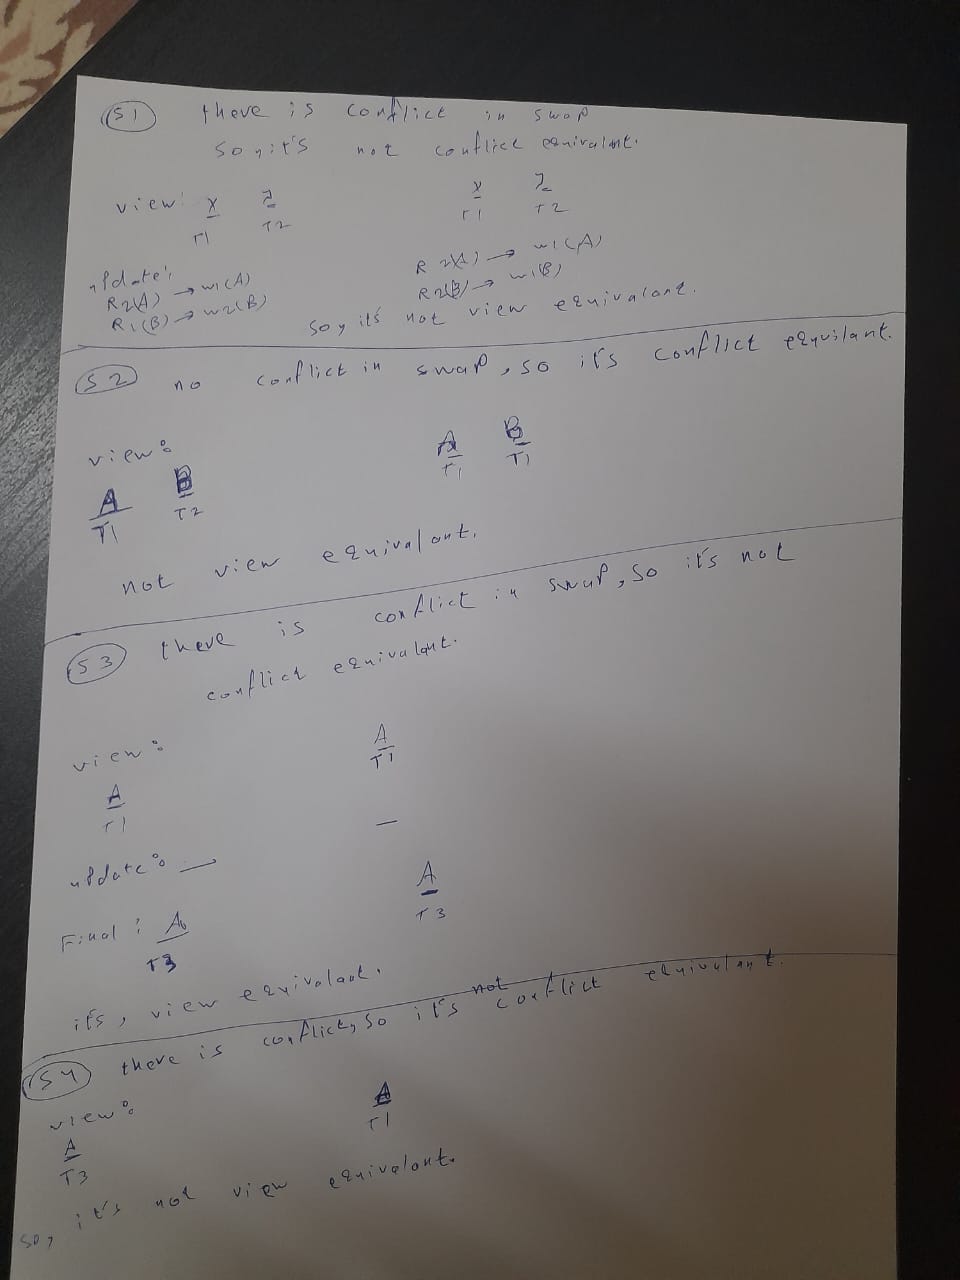 S1 there is conflict in swap
so, it's not conflict equivalnt.
view: x z x z
T1 T2 T1 T2
update:
R2(A) → w1(A) R2(A) → w1(A)
R1(B) → w2(B) R2(B) → w1(B)
so, it's not view equivalent.
S2 no conflict in swap, so it's conflict equvilant.
view: A B
T1 T1
A B
T1 T2
not view equivalent.
S3 there is conflict in swap, so it's not
conflict equivalent.
view: A
T1
A
T1
update: — —
Final: A A
T3 T3
it's, view equivalent.
S4 there is conflict, so it's not conflict equivulant.
view: A
T1
A
T3
so, it's not view equivalent.